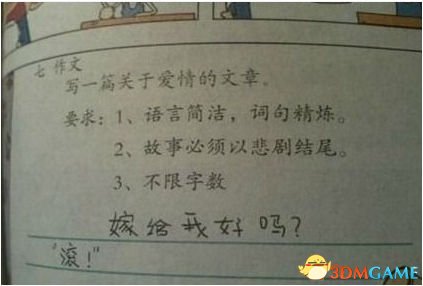 七 作文
写一篇关于爱情的文章。
要求：1、语言简洁，词句精炼。
2、故事必须以悲剧结尾。
3、不限字数
嫁给我好吗？
"滚！"
3DMGAME